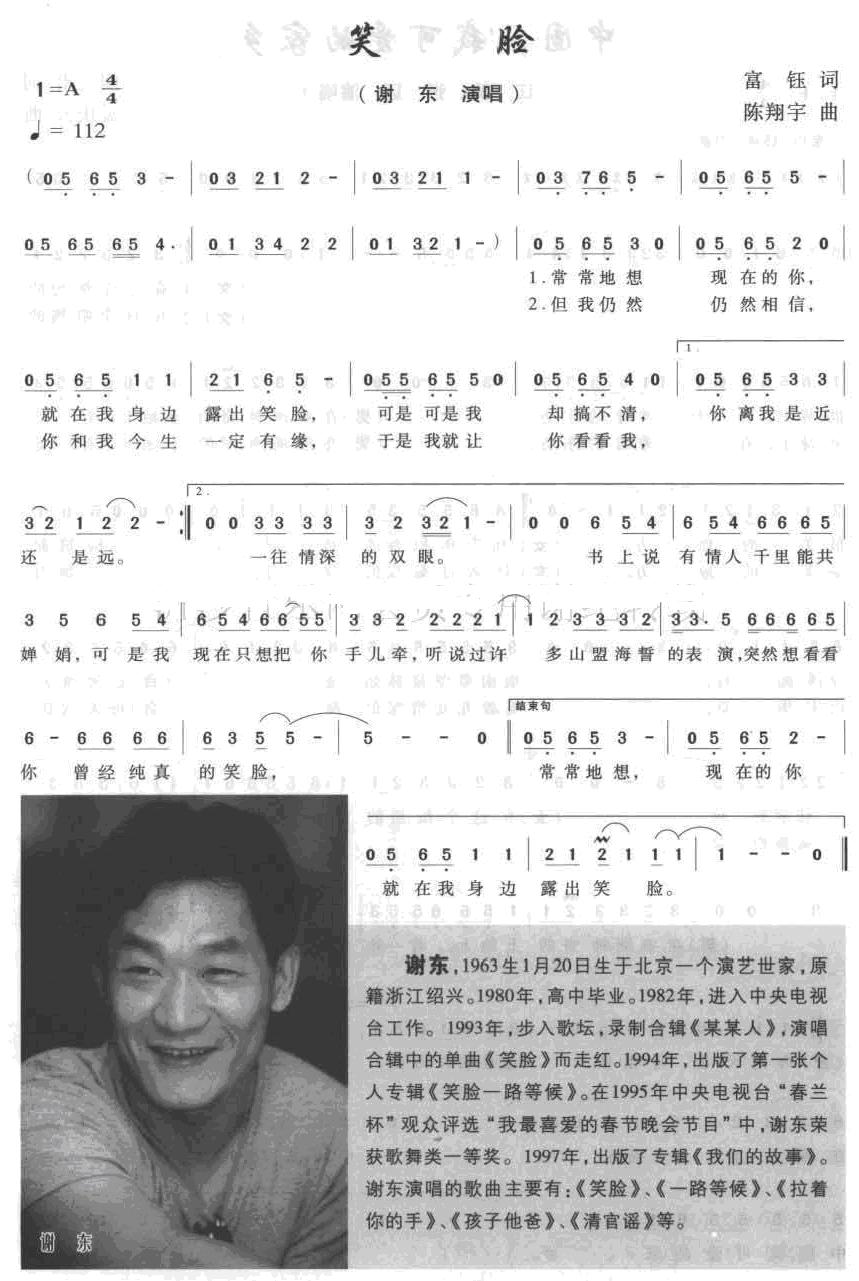 笑 脸
1=A 4/4
（谢 东 演唱）
富 钰 词
陈翔宇 曲
♩= 112
(05 65 3 - | 03 21 2 - | 03 21 1 - | 03 765 - | 05 65 5 - |
05 65 65 4. | 01 34 2 2 | 01 321 -) | 05 65 3 0 | 05 65 2 0 |
1.常 常地 想 现 在的 你，
2.但 我仍 然 仍 然相 信，
05 65 1 1 | 21 65 - | 055 65 50 | 05 65 4 0 | 1. 05 65 3 3 |
就 在我 身 边 露出 笑 脸， 可是 可是 我 却 搞不 清， 你 离我 是 近
你 和我 今 生 一定 有 缘， 于是 我就 让 你 看看 我，
32 122 - :‖ 2. 0 0 33 33 | 32 321 - | 0 0 6 54 | 654 6665 |
还 是 远。 一往 情深 的 双眼。 书 上说 有 情人 千里能共
3 5 6 54 ‖ 654 6655 | 332 2221 | 12 3332 | 33. 5 66665 |
婵 娟，可 是我 现在只想把 你 手儿 牵，听说过许 多山盟海誓 的表 演，突然想看看
6 - 66 66 | 635 5 - | 5 - - 0 ‖ 结束句 05 65 3 - | 05 65 2 - |
你 曾经 纯真 的 笑脸， 常 常地 想， 现 在的 你
05 65 1 1 | 21 21 11 | 1 - - 0 ‖
就 在我 身 边 露 出 笑 脸。
谢东，1963年1月20日生于北京一个演艺世家，原
籍浙江绍兴。1980年，高中毕业。1982年，进入中央电视
台工作。1993年，步入歌坛，录制合辑《某某人》，演唱
合辑中的单曲《笑脸》而走红。1994年，出版了第一张个
人专辑《笑脸一路等候》。在1995年中央电视台“春兰
杯”观众评选“我最喜爱的春节晚会节目”中，谢东荣
获歌舞类一等奖。1997年，出版了专辑《我们的故事》。
谢东演唱的歌曲主要有：《笑脸》、《一路等候》、《拉着
你的手》、《孩子他爸》、《清官谣》等。
谢 东